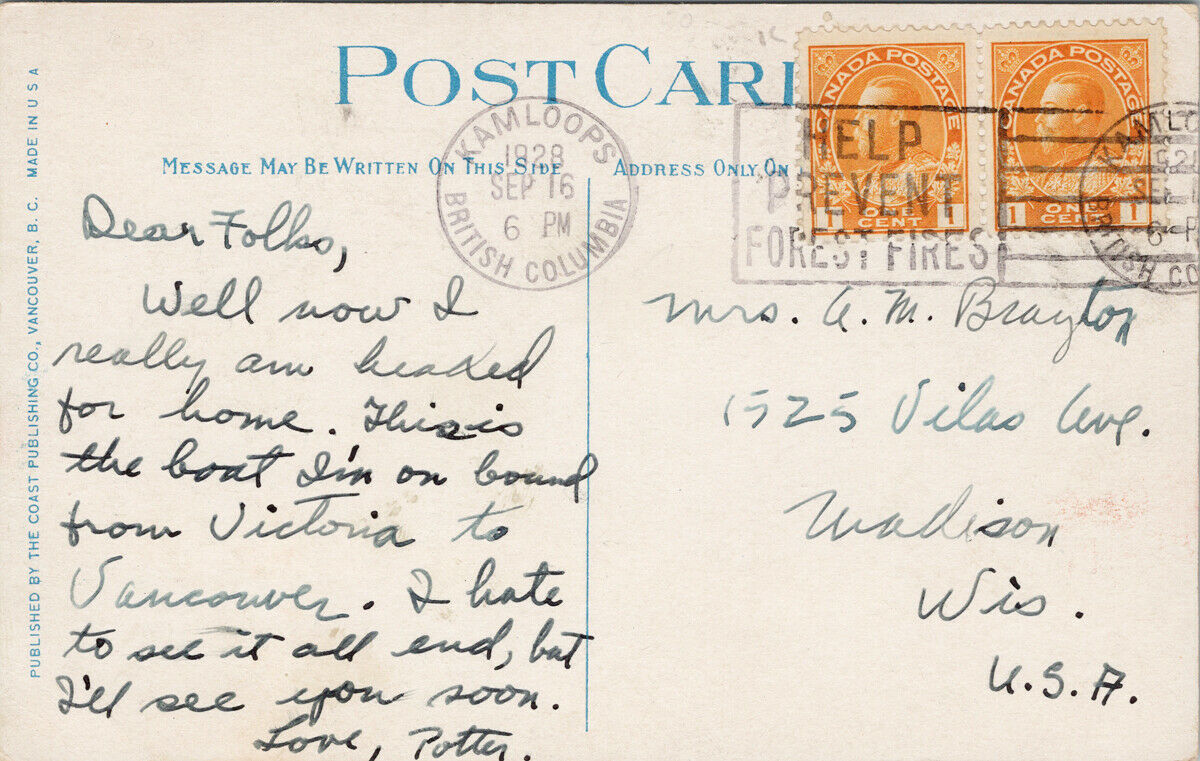 POST CAR
MESSAGE MAY BE WRITTEN ON THIS SIDE
ADDRESS ONLY ON
KAMLOOPS
1928
SEP 16
6 PM
BRITISH COLUMBIA
HELP
PREVENT
FOREST FIRES
CANADA POSTAGE
1 ONE CENT 1
CANADA POSTAGE
1 ONE CENT 1
Dear Folks,
Well now I
really am headed
for home. This is
the boat I'm on bound
from Victoria to
Vancouver. I hate
to see it all end, but
I'll see you soon.
Love, Potter.
Mrs. A. M. Brayton
1525 Vilas Ave.
Madison
Wis.
U.S.A.
PUBLISHED BY THE COAST PUBLISHING CO., VANCOUVER, B. C. MADE IN U S A